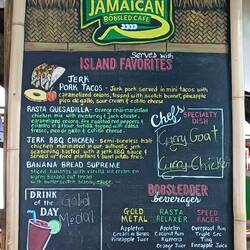 JAMAICAN
BOBSLED CAFE
Served with
ISLAND FAVORITES
JERK
PORK TACOS - Jerk pork served in mini tacos with
caramelized onions, topped with scotch bonnet, pineapple
pico de gallo, sour cream & cotija cheese
RASTA QUESADILLA -
chicken mix with monterey & jack cheese,
caramelized onions, fire roasted red peppers &
cilantro in a flour tortilla topped with salsa
fresca, pico de gallo & cotija cheese.
JERK BBQ CHICKEN - Semi-boneless half
chicken marinated in our authentic jerk
seasoning basted with a jerk BBQ sauce
served w/ fried plantains & bus
BANANA BREAD SUPREME
Sliced banana with vanilla ice cream on
warm banana nut bread
with butterscotch sauce
Chef's
SPECIALTY
DISH
Curry Goat
Curry Chicken
DRINK
of the
DAY
Gold
Medal
BOBSLEDDER
beverages
GOLD
METAL
Appleton
Coconut Rum
Banana
Pineapple Juice
RASTA
RELAXER
Appleton
Coconut Rum
Kumora
Orange Juice
SPEED
RACER
Overproof Rum
Triple Sec
Ting
Pineapple Juice